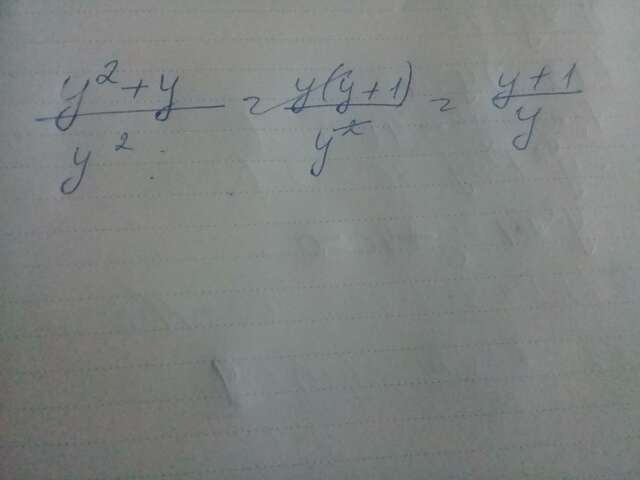 y²+y / y² = y(y+1) / y² = y+1 / y